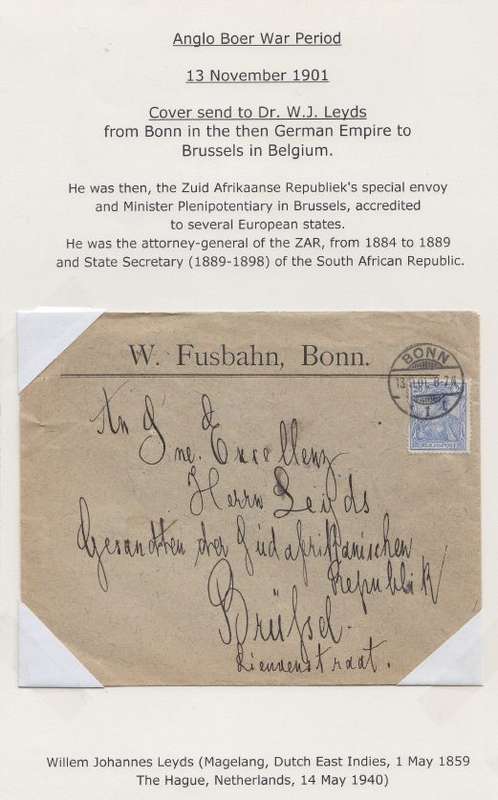 Anglo Boer War Period
13 November 1901
Cover send to Dr. W.J. Leyds
from Bonn in the then German Empire to
Brussels in Belgium.
He was then, the Zuid Afrikaanse Republiek's special envoy
and Minister Plenipotentiary in Brussels, accredited
to several European states.
He was the attorney-general of the ZAR, from 1884 to 1889
and State Secretary (1889-1898) of the South African Republic.
W. Fusbahn, Bonn.
BONN
An Sne. Excellenz
Herrn Leyds
Gesandten der Südafrikanischen
Republik
Brüssel.
Willem Johannes Leyds (Magelang, Dutch East Indies, 1 May 1859
The Hague, Netherlands, 14 May 1940)